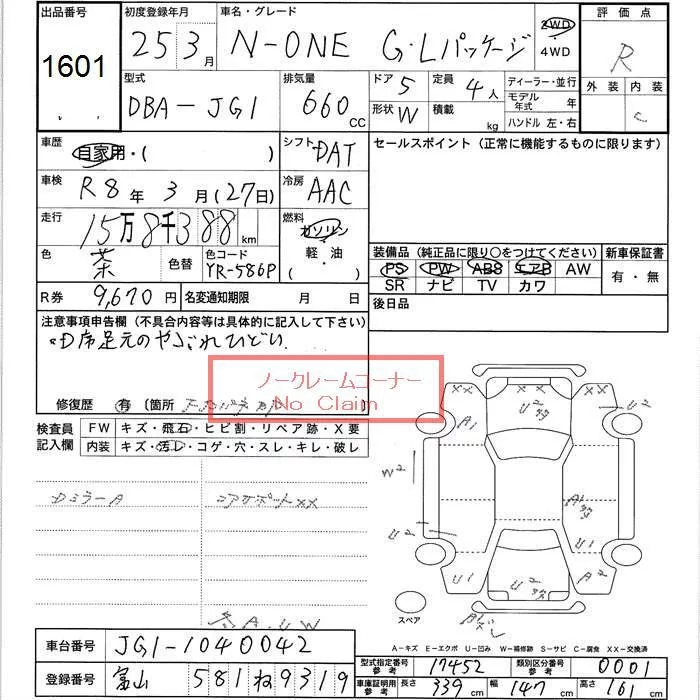 出品番号 初度登録年月 車名・グレード 評価点
1601 25 3月 N-ONE G・Lパッケージ 2WD 4WD R
型式 排気量 ドア 5 定員 4人 ディーラー・並行 外装 内装
DBA-JG1 660 CC 形状 W 積載 kg モデル年式 年 C
ハンドル 左・右
車歴 自家用・( ) シフト DAT セールスポイント (正常に機能するものに限ります)
車検 R8年 3月(27日) 冷房 AAC
走行 15万8千388km 燃料 ガソリン 軽・油 ( )
色 茶 色替 色コード YR-586P 装備品 (純正品に限り○をつけてください) 新車保証書
PS PW ABS エアB AW 有・無
SR ナビ TV カワ
R券 9,670円 名変通知期限 月 日 後日品
注意事項申告欄 (不具合内容等は具体的に記入して下さい)
D席足元のやぶれひどい
ノークレームコーナー
No Claim
修復歴 有 〔箇所
検査員記入欄 FW キズ・飛石・ヒビ割・リペア跡・X要
内装 キズ・汚レ・コゲ・穴・スレ・キレ・破レ
DミラーA コアサポートXX
A.U.W
XX XX
U2
A1
U2
W2
A1
U2 U2
U1 U1
U2 A2
スペア
A-キズ E-エクボ U-凹み W-補修跡 S-サビ C-腐食 XX-交換済
車台番号 JG1-1040042 型式指定番号 参考 17452 類別区分番号 参考 0001
登録番号 富山 581 ね 9319 車庫証明用 参考 長さ 339cm 幅 147cm 高さ 161cm